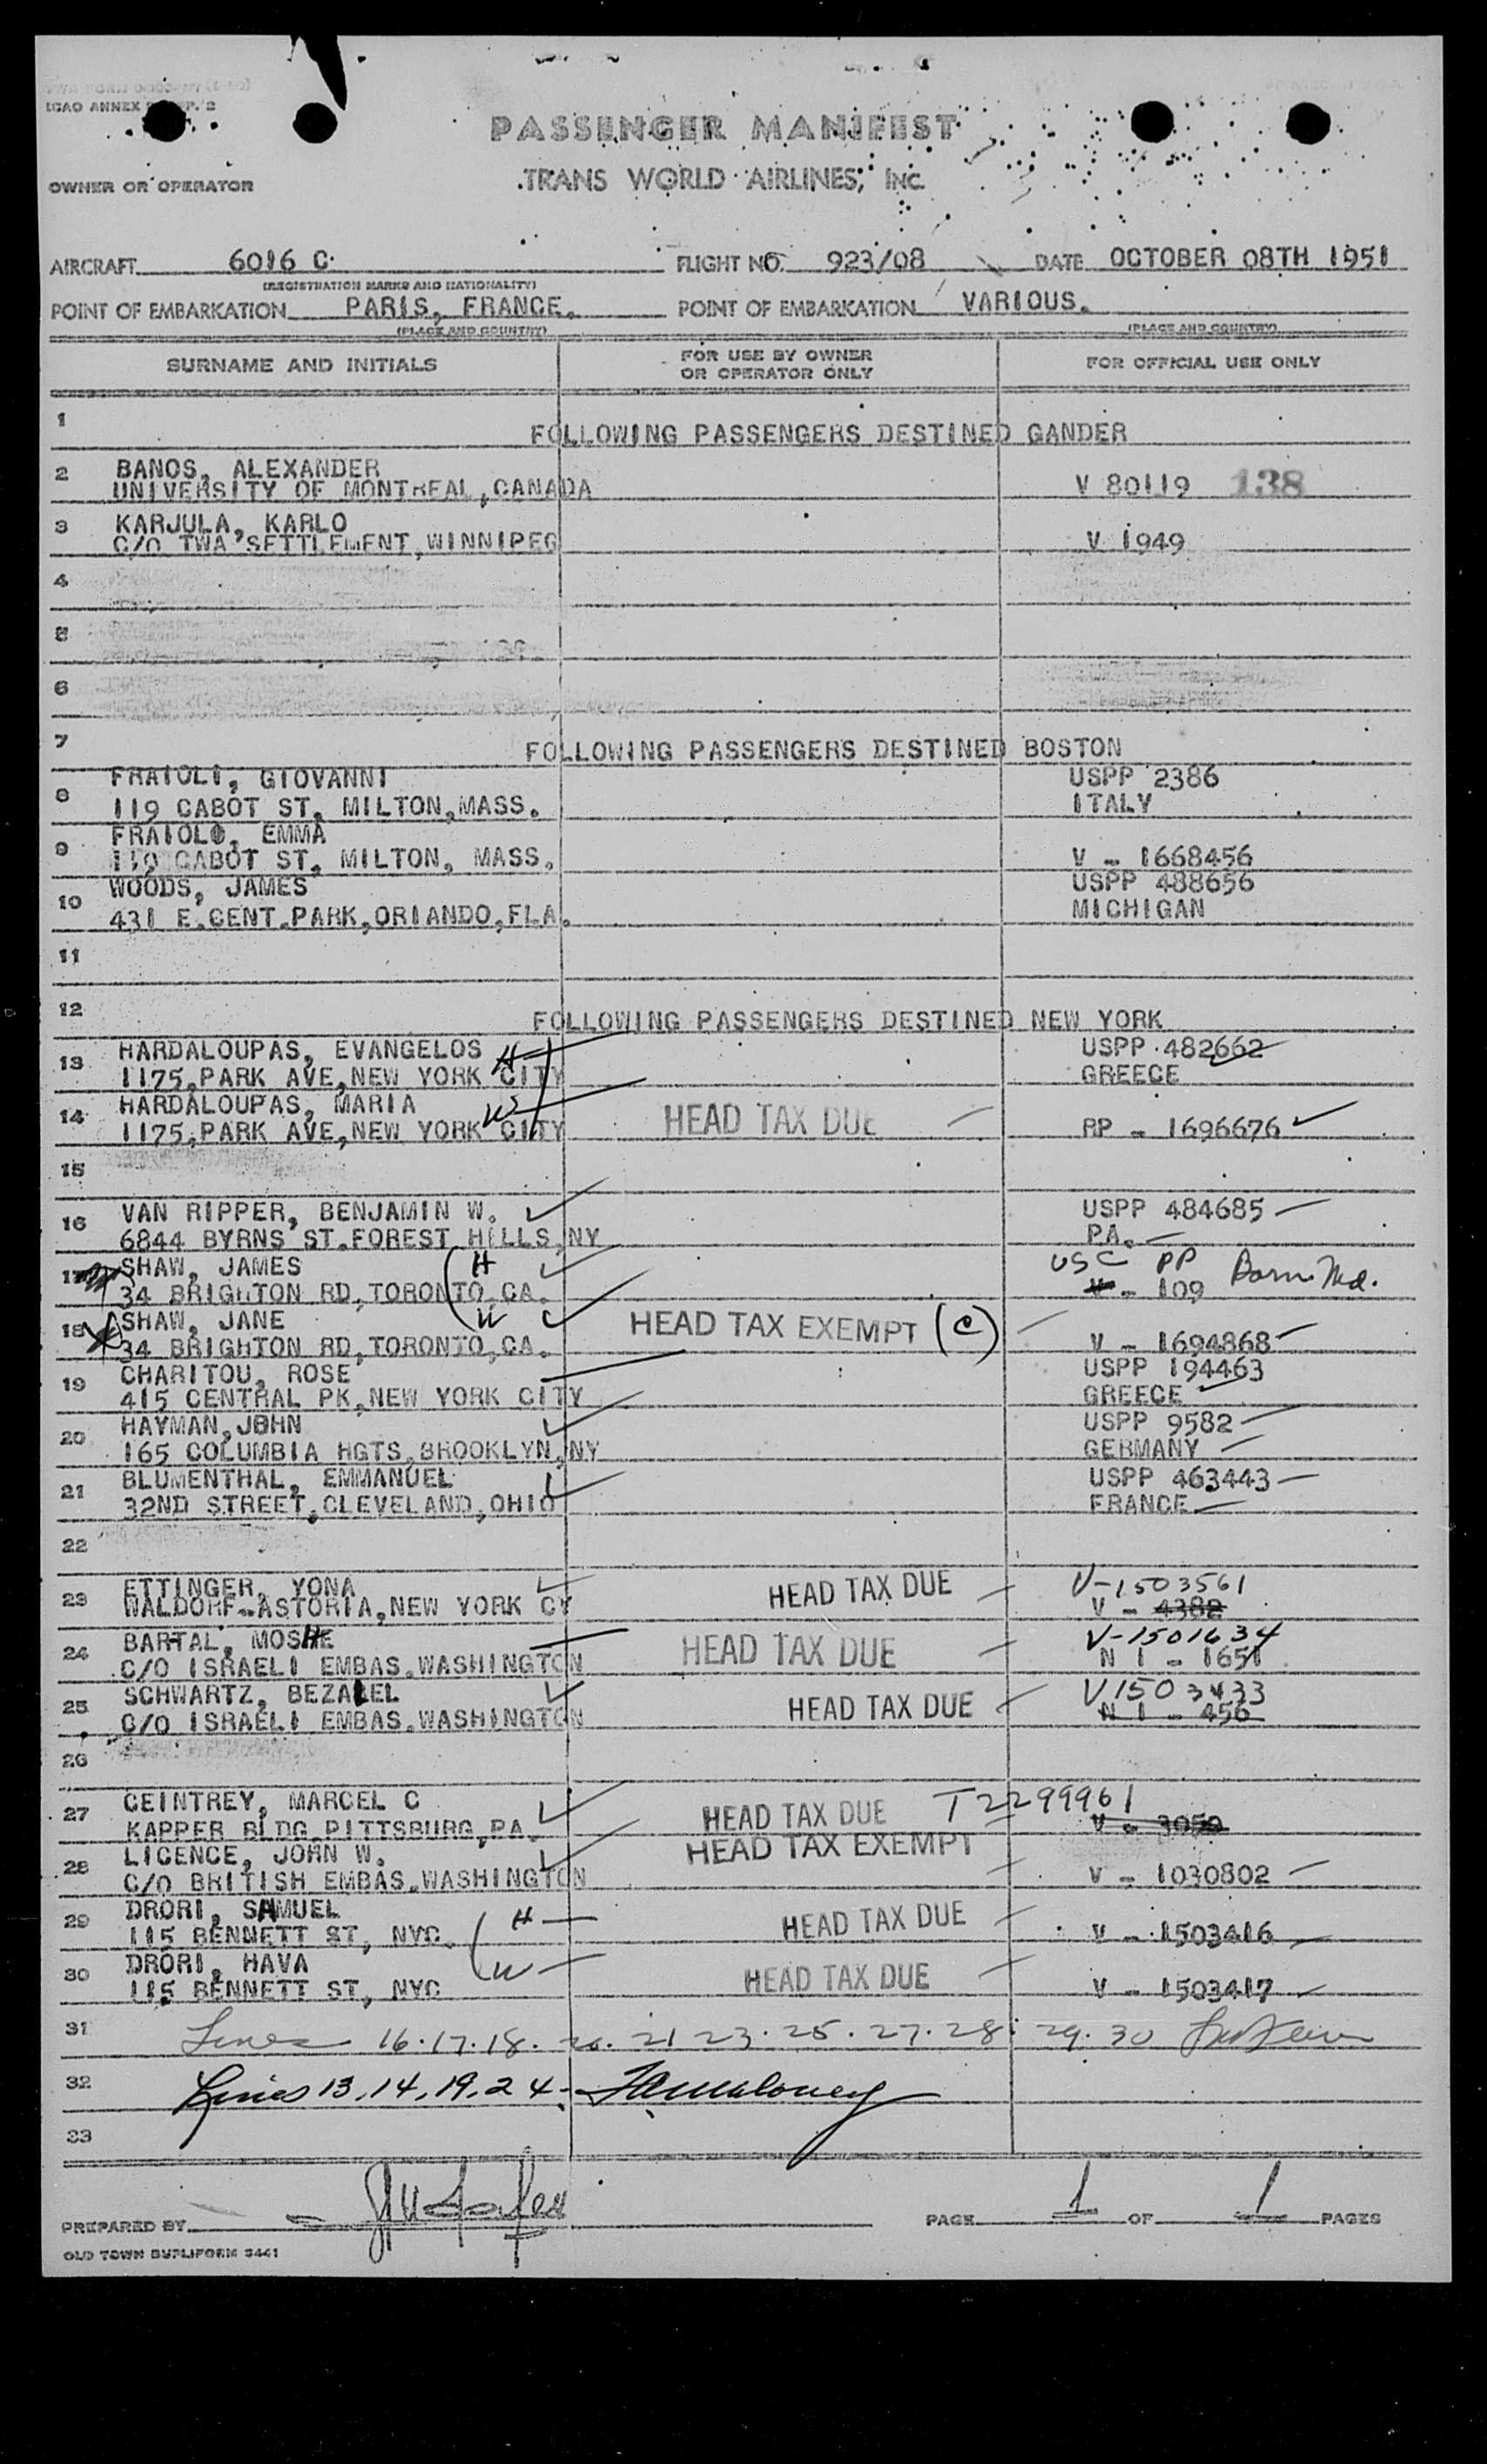 ICAO ANNEX
PASSENGER MANIFEST
OWNER OR OPERATOR
TRANS WORLD AIRLINES, INC.
AIRCRAFT 6016 C. FLIGHT NO. 923/08 DATE OCTOBER 08TH 1951
(REGISTRATION MARKS AND NATIONALITY)
POINT OF EMBARKATION PARIS, FRANCE. POINT OF EMBARKATION VARIOUS.
(PLACE AND COUNTRY) (PLACE AND COUNTRY)
SURNAME AND INITIALS FOR USE BY OWNER OR OPERATOR ONLY FOR OFFICIAL USE ONLY
1
FOLLOWING PASSENGERS DESTINED GANDER
2 BANOS, ALEXANDER
UNIVERSITY OF MONTREAL, CANADA V 80119 138
3 KARJULA, KARLO
C/O TWA SETTLEMENT, WINNIPEG V 1949
4
5
6
7
FOLLOWING PASSENGERS DESTINED BOSTON
8 FRAIOLI, GIOVANNI USPP 2386
119 CABOT ST. MILTON, MASS. ITALY
9 FRAIOLO, EMMA
119 CABOT ST. MILTON, MASS. V - 1668456
10 WOODS, JAMES USPP 488656
431 E.CENT.PARK, ORIANDO, FLA. MICHIGAN
11
12
FOLLOWING PASSENGERS DESTINED NEW YORK
13 HARDALOUPAS, EVANGELOS H USPP 482662
1175, PARK AVE, NEW YORK CITY GREECE
14 HARDALOUPAS, MARIA W
1175, PARK AVE, NEW YORK CITY HEAD TAX DUE RP - 1696676
15
16 VAN RIPPER, BENJAMIN W. USPP 484685
6844 BYRNS ST. FOREST HILLS, NY PA.
17 SHAW, JAMES H USC PP Born Md.
34 BRIGHTON RD, TORONTO, CA. V - 109
18 SHAW, JANE W HEAD TAX EXEMPT (C)
34 BRIGHTON RD, TORONTO, CA. V - 1694868
19 CHARITOU, ROSE USPP 194463
415 CENTRAL PK, NEW YORK CITY GREECE
20 HAYMAN, JOHN USPP 9582
165 COLUMBIA HGTS, BROOKLYN, NY GERMANY
21 BLUMENTHAL, EMMANUEL USPP 463443
32ND STREET, CLEVELAND, OHIO FRANCE
22
23 ETTINGER, YONA HEAD TAX DUE V-1503561
WALDORF-ASTORIA, NEW YORK CY V - 4382
24 BARTAL, MOSHE HEAD TAX DUE V-1501634
C/O ISRAELI EMBAS. WASHINGTON N I - 1651
25 SCHWARTZ, BEZALEL HEAD TAX DUE V1503433
C/O ISRAELI EMBAS. WASHINGTON N I - 456
26
27 CEINTREY, MARCEL C HEAD TAX DUE T2299961
KAPPER BLDG PITTSBURG, PA. V - 3050
28 LICENCE, JOHN W. HEAD TAX EXEMPT
C/O BRITISH EMBAS. WASHINGTON V - 1030802
29 DRORI, SAMUEL H HEAD TAX DUE
115 BENNETT ST, NYC. V - 1503416
30 DRORI, HAVA W HEAD TAX DUE
115 BENNETT ST, NYC V - 1503417
31 Lines 16.17.18. 20. 21 23. 25. 27. 28. 29. 30
32 Lines 13, 14, 19, 24.
33
PREPARED BY PAGE 1 OF 1 PAGES
OLD TOWN DUPLIFORM 3441